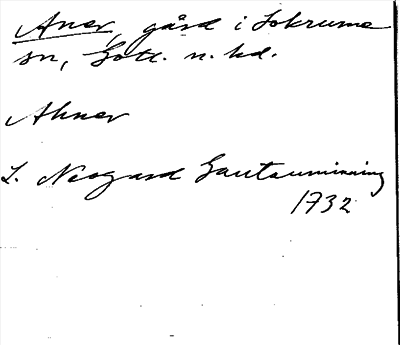 Aner, gård i Lokrume
sn, Gotl. n. hd.
Ahner
L. Neogard Gautauminning
1732